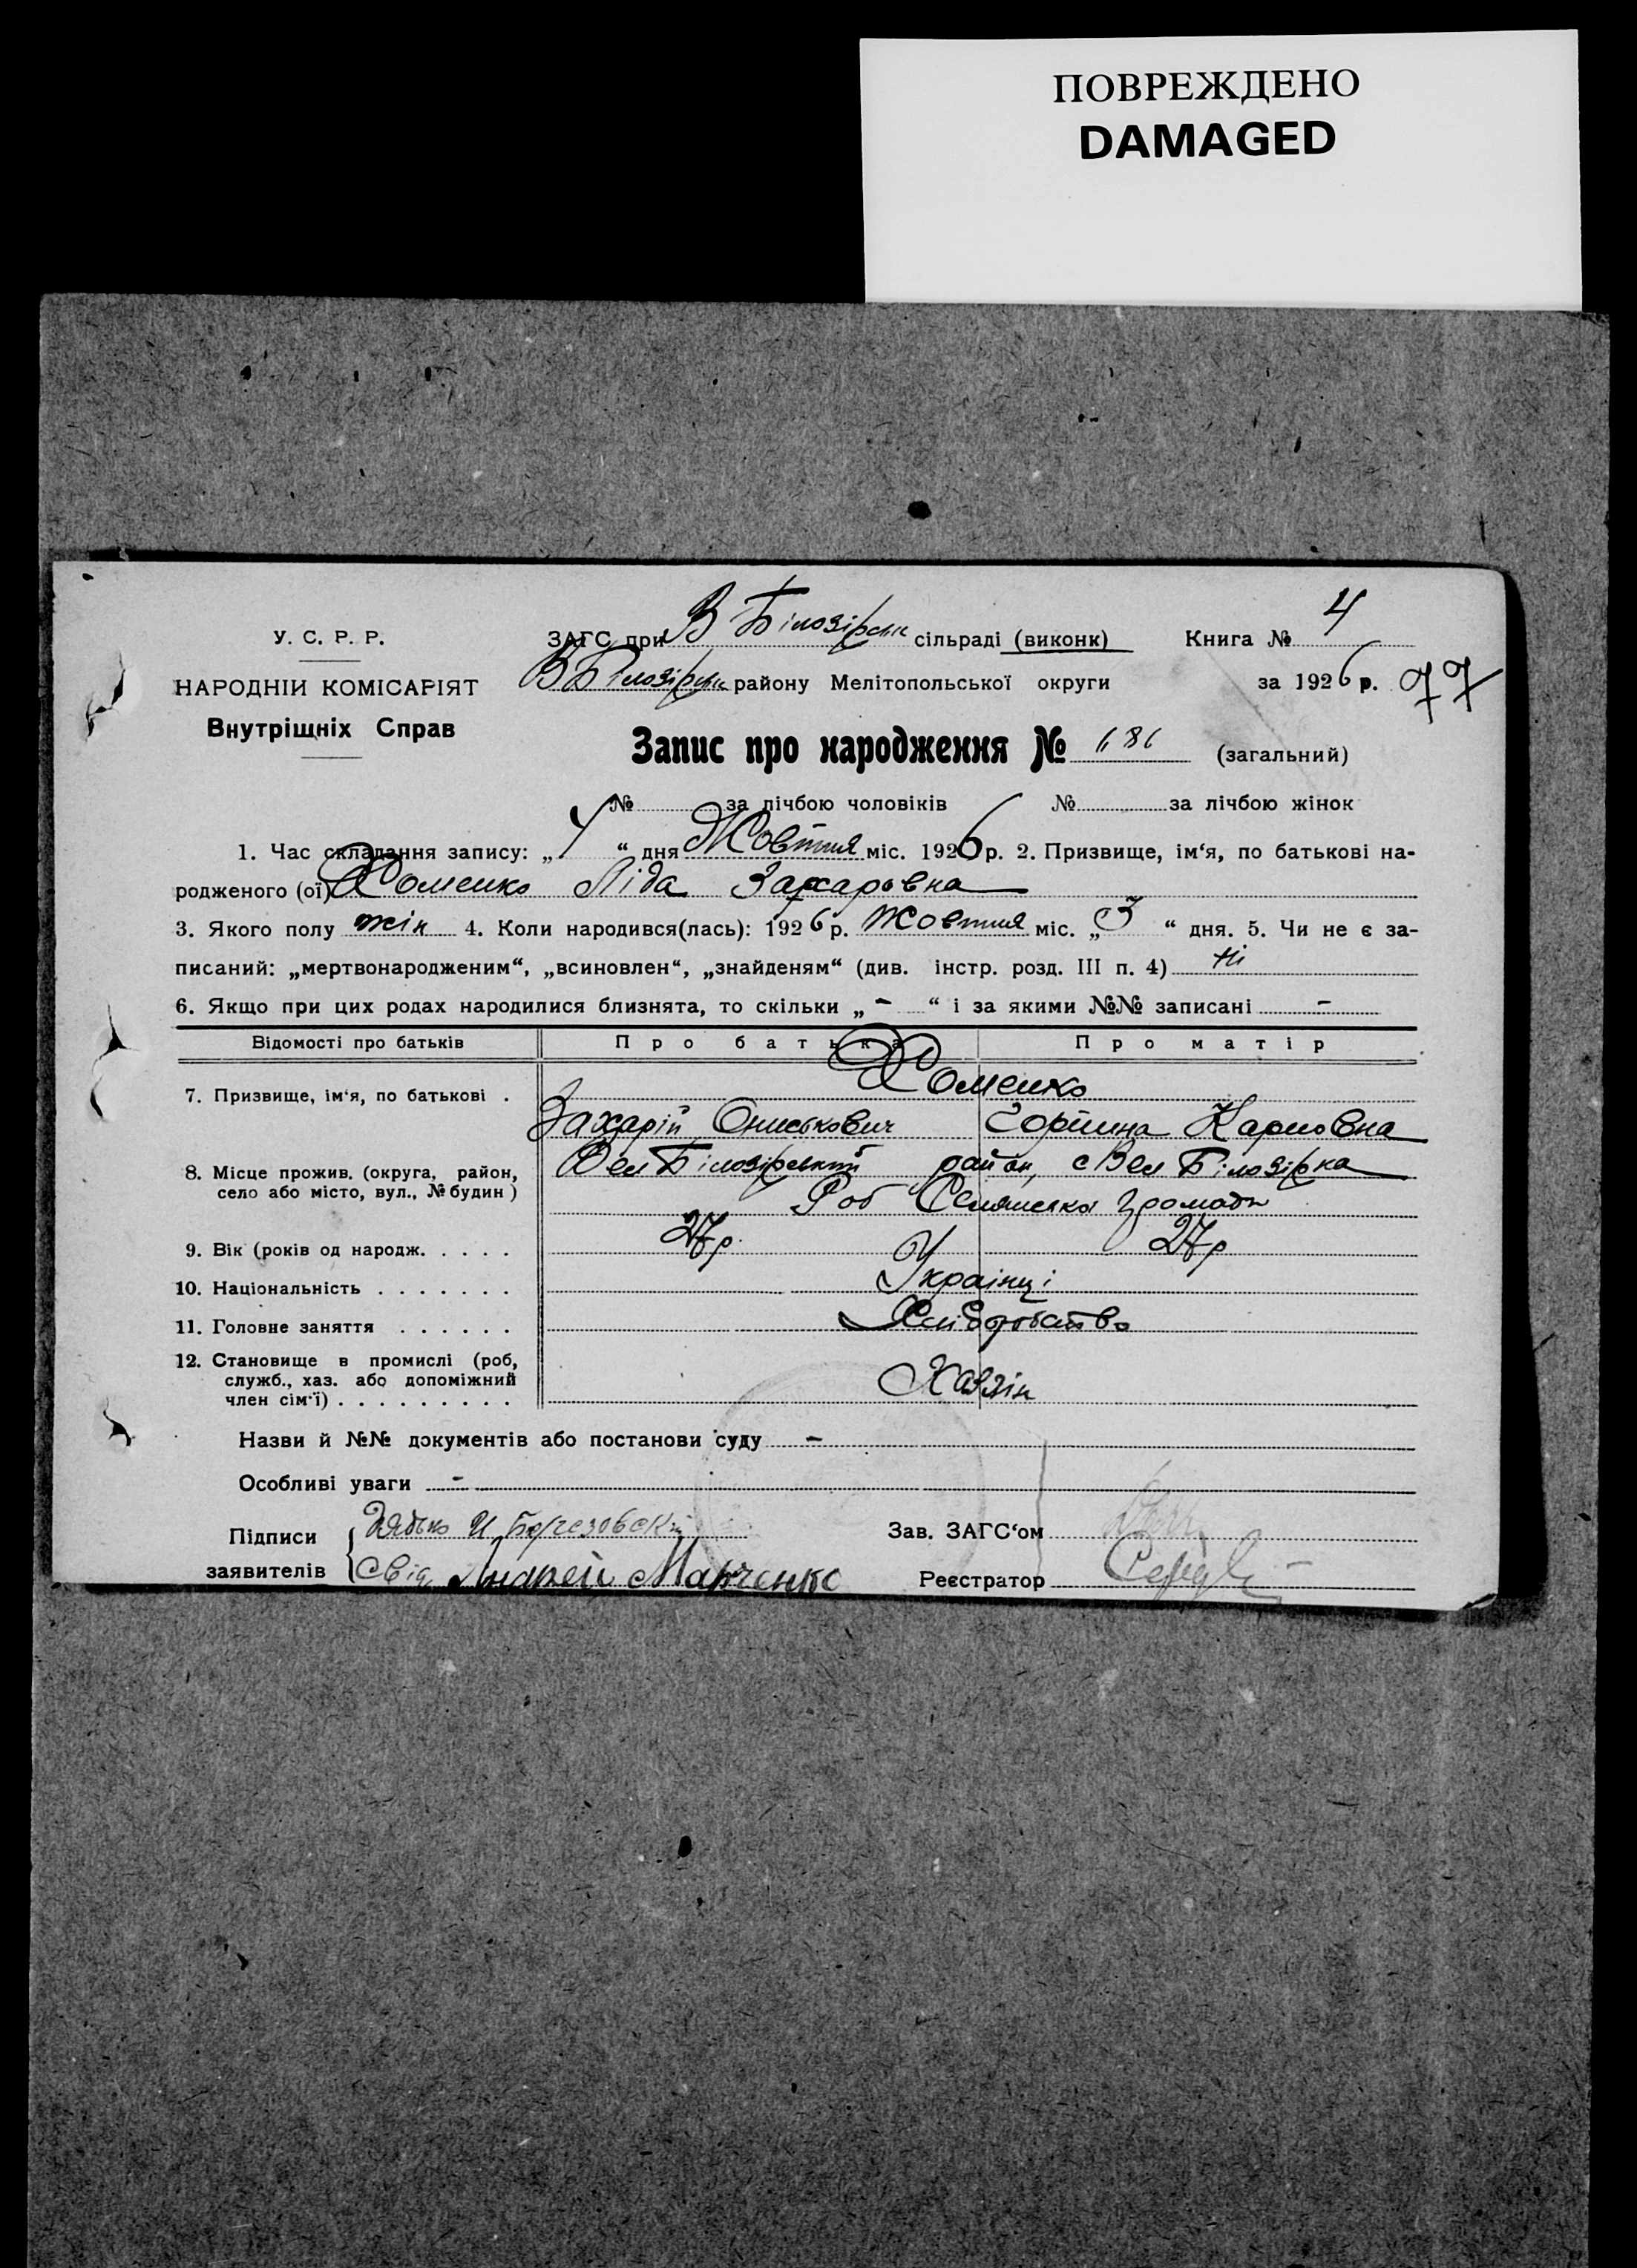 ПОВРЕЖДЕНО
DAMAGED
У. С. Р. Р.
НАРОДНІЙ КОМІСАРІЯТ
Внутрішніх Справ
ЗАГС при В Білозірськ сільраді (виконк) Книга № 4
В Білозірськ району Мелітопольської округи за 1926 р. 77
Запис про народження № 686 (загальний)
№ за лічбою чоловіків № за лічбою жінок
1. Час складання запису: „ 4 “ дня Жовтня міс. 1926 р. 2. Призвище, ім‘я, по батькові на-
родженого (ої) Хоменко Ліда Захаровна
3. Якого полу жін 4. Коли народився(лась): 1926 р. Жовтня міс. „ 3 “ дня. 5. Чи не є за-
писаний: „мертвонародженим“, „всиновлен“, „знайденям“ (див. інстр. розд. III п. 4) Ні
6. Якщо при цих родах народилися близнята, то скільки „ - “ і за якими №№ записані -
Відомості про батьків Про батька Про матір
Хоменко
7. Призвище, ім‘я, по батькові . ЗахарійОниськович Карповна
8. Місце прожив. (округа, район, Вел Білозірський район, с Вел Білозірка
село або місто, вул., № будин) Роб Селянська громади
9. Вік (років од народж. . . . . 27 р. 27 р
10. Національність . . . . . . . Українці
11. Головне заняття . . . . . . Хліборобство
12. Становище в промислі (роб,
служб., хаз. або допоміжний Хазяін
член сім‘ї) . . . . . . . . .
Назви й №№ документів або постанови суду -
Особливі уваги -
Підписи Дядько И. Зав. ЗАГС‘ом
заявителів Свід Андрей Марченко Реєстратор